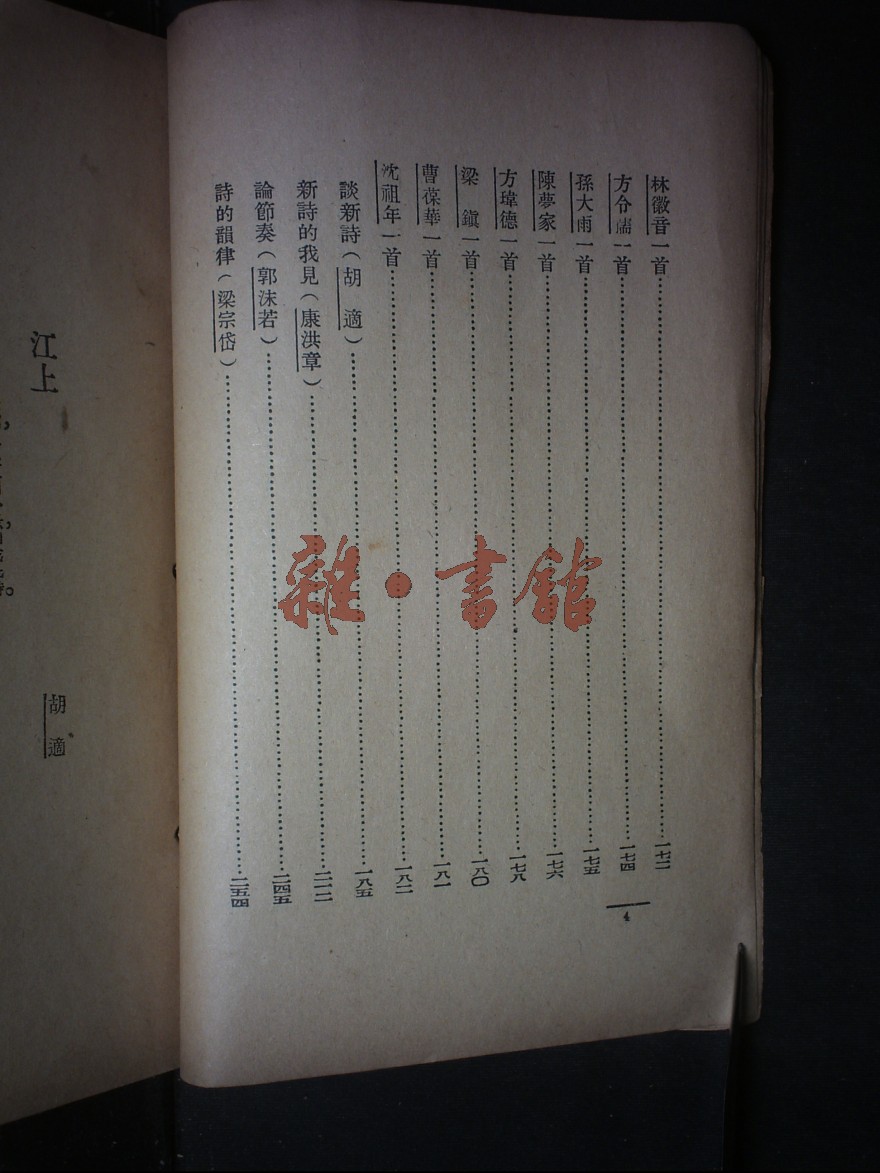 林徽音一首……一七二
方令孺一首……一七四
孫大雨一首……一七五
陳夢家一首……一七六
方瑋德一首……一七八
梁　鎮一首……一八〇
曹葆華一首……一八一
沈祖年一首……一八二
談新詩（胡　適）……一八五
新詩的我見（康洪章）……二一二
論節奏（郭沫若）……二四五
詩的韻律（梁宗岱）……二五四
4
江上
胡　適
雜·書館